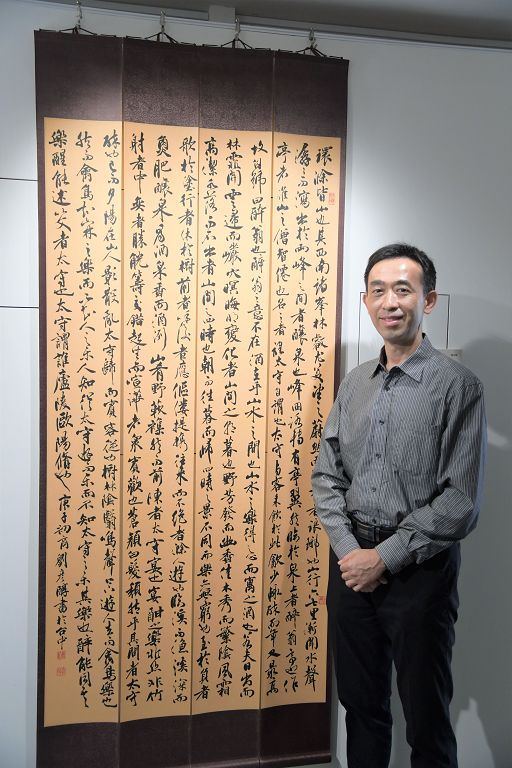 環滁皆山也其西南諸峯林壑尤美望之蔚然而者琅琊也山行六七里漸聞水聲
潺潺而瀉出於兩峰之間者釀泉也峰回路轉有亭翼然臨於泉上者醉翁亭也作
亭者誰山之僧智僊也名之者誰太守自謂也太守與客來飲於此飲少輒醉而年又最高
故自號曰醉翁也醉翁之意不在酒在乎山水之間也山水之樂得之心而寓之酒也若夫日出而
林霏開雲歸而巖穴暝晦明變化者山間之朝暮也野芳發而幽香佳木秀而繁陰風霜
高潔水落而石出者山間之四時也朝而往暮而歸四時之景不同而樂亦無窮也至於負者
歌於塗行者休於樹前者呼後者應傴僂提攜往來而不絕者滁人遊也臨溪而漁溪深而
魚肥釀泉為酒泉香而酒洌山肴野蔌雜然而前陳者太守宴也宴酣之樂非絲非竹
射者中奕者勝觥籌交錯起坐而諠譁者眾賓歡也蒼顏白髮頹然乎其間者太守
醉也已而夕陽在山人影散亂太守歸而賓客從也樹林陰翳鳴聲上下遊人去而禽鳥樂也
然而禽鳥知山林之樂而不知人之樂人知從太守遊而樂而不知太守之樂其樂也醉能同其
樂醒能述以文者太守也太守謂誰廬陵歐陽脩也 庚子初商劉彥騰書於台中